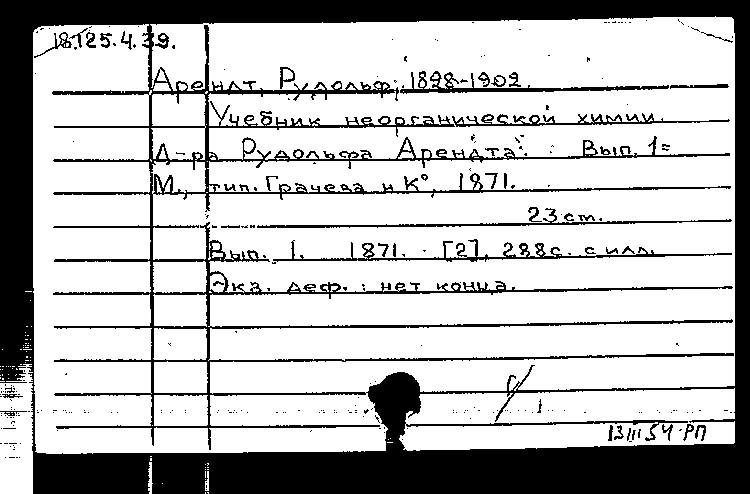 18.125.4.39.
Арендт, Рудольф, 1828-1902.
Учебник неорганической химии.
Д-ра Рудольфа Арендта. Вып. 1=
М., тип. Грачева и К°, 1871.
23 см.
Вып. 1. 1871. [2], 288с. с илл.
Экз. деф.: нет конца.
13 III 54 РП